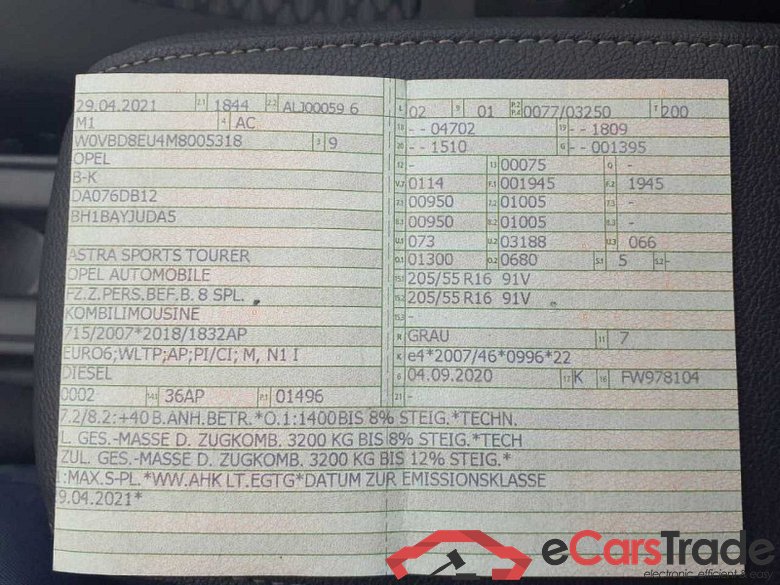 29.04.2021 2.1 1844 2.2 ALJ00059 6
M1 4 AC
W0VBD8EU4M8005318 3 9
OPEL
B-K
DA076DB12
BH1BAYJUDA5
ASTRA SPORTS TOURER
OPEL AUTOMOBILE
FZ.Z.PERS.BEF.B. 8 SPL.
KOMBILIMOUSINE
715/2007*2018/1832AP
EURO6;WLTP;AP;PI/CI; M, N1 I
DIESEL
0002 14.1 36AP P.1 01496
7.2/8.2:+40 B.ANH.BETR.*O.1:1400BIS 8% STEIG.*TECHN.
L. GES.-MASSE D. ZUGKOMB. 3200 KG BIS 8% STEIG.*TECH
ZUL. GES.-MASSE D. ZUGKOMB. 3200 KG BIS 12% STEIG.*
1:MAX.S-PL.*WW.AHK LT.EGTG*DATUM ZUR EMISSIONSKLASSE
9.04.2021*
L 02 9 01 P.2 P.4 0077/03250 T 200
18 --04702 19 --1809
20 --1510 G --001395
12 - 13 00075 Q -
V.7 0114 F.1 001945 F.2 1945
7.1 00950 7.2 01005 7.3 -
8.1 00950 8.2 01005 8.3 -
U.1 073 U.2 03188 U.3 066
O.1 01300 O.2 0680 S.1 5 S.2 -
15.1 205/55 R16 91V
15.2 205/55 R16 91V
15.3 -
R GRAU 11 7
K e4*2007/46*0996*22
6 04.09.2020 17 K 16 FW978104
21 -
eCarsTrade
electronic, efficient & easy